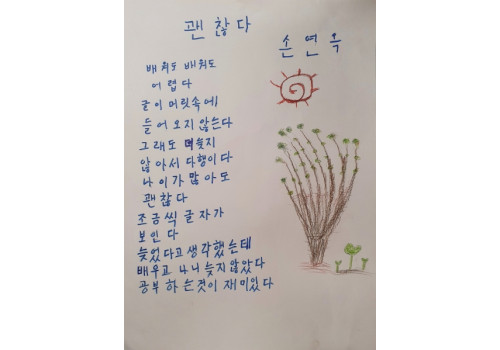 괜찮다
손연옥
배워도 배워도
어렵다
글이 머릿속에
들어오지 않는다
그래도 늦지
않아서 다행이다
나이가 많아도
괜찮다
조금씩 글자가
보인다
늦었다고 생각했는데
배우고 나니 늦지않았다
공부 하는것이 재미있다